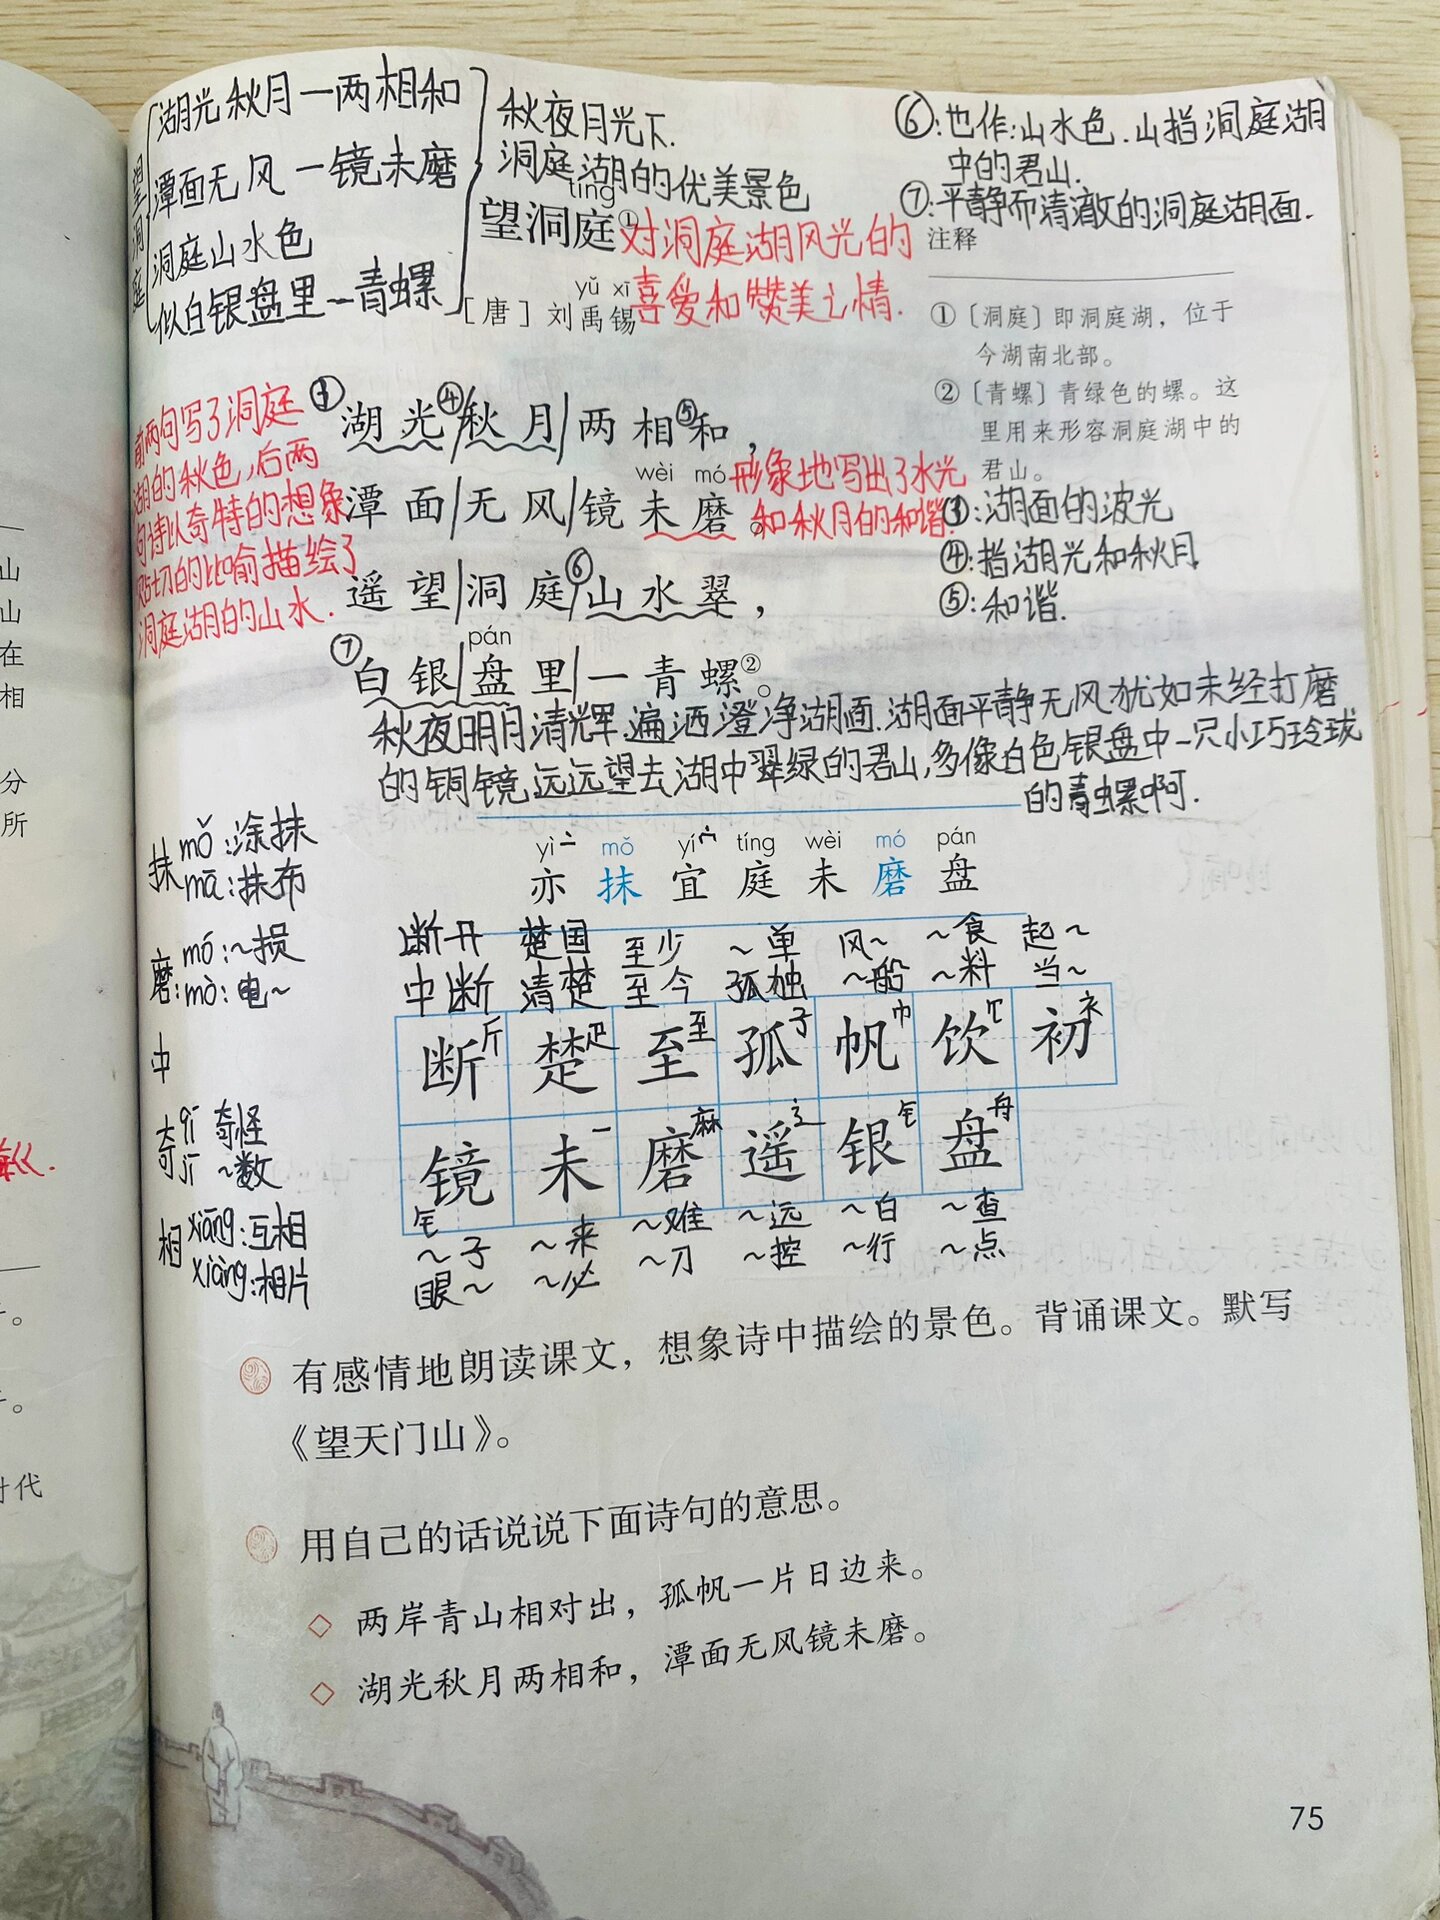 望洞庭
湖光秋月一两相和
潭面无风一镜未磨
洞庭山水色
似白银盘里一青螺
秋夜月光下.
洞庭湖的优美景色
⑥:也作:山水色.山指洞庭湖
中的君山.
⑦:平静而清澈的洞庭湖面.
tíng
望洞庭①
对洞庭湖风光的
喜爱和赞美之情.
yǔ xī
［唐］刘禹锡
注释
①〔洞庭〕即洞庭湖，位于
今湖南北部。
②〔青螺〕青绿色的螺。这
里用来形容洞庭湖中的
君山。
③:湖面的波光
④:指湖光和秋月
⑤:和谐.
前两句写了洞庭
湖的秋色,后两
句诗以奇特的想象
贴切的比喻描绘了
洞庭湖的山水.
③湖光④秋月两相⑤和，
wèi mó
潭面无风镜未磨。
形象地写出了水光
和秋月的和谐
遥望洞庭⑥山水翠，
pán
⑦白银盘里一青螺②。
秋夜明月清辉.遍洒澄净湖面.湖面平静无风犹如未经打磨
的铜镜,远远望去湖中翠绿的君山,多像白色银盘中一只小巧玲珑
的青螺啊.
yì 亠 mǒ yí 宀 tíng wèi mó pán
亦 抹 宜 庭 未 磨 盘
抹 mǒ:涂抹
mā:抹布
磨: mó:~损
mò:电~
中
奇 qí 奇怪
jī ~数
相 xiāng:互相
xiàng:相片
断开 楚国 至少 ~单 风~ ~食 起~
中断 清楚 至今 孤独 ~船 ~料 当~
断 斤 楚 疋 至 至 孤 子 帆 巾 饮 饣 初 衤
镜 钅 未 一 磨 麻 遥 辶 银 钅 盘 舟
~子 ~来 ~难 ~远 ~白 ~查
眼~ ~必 ~刀 ~控 ~行 ~点
有感情地朗读课文，想象诗中描绘的景色。背诵课文。默写
《望天门山》。
用自己的话说说下面诗句的意思。
◇ 两岸青山相对出，孤帆一片日边来。
◇ 湖光秋月两相和，潭面无风镜未磨。
75
山
山
在
相
分
所
时代